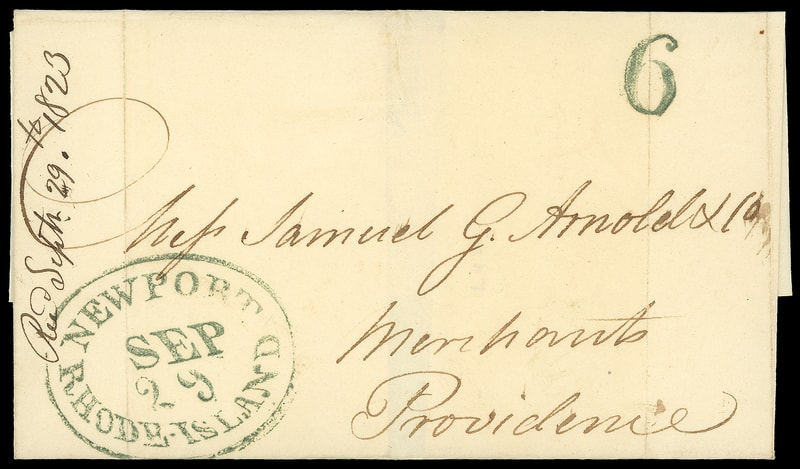 Recd Septr. 29.th 1823
6
Mess Samuel G. Arnold & Co
Merchants
Providence
NEWPORT
SEP
29
RHODE-ISLAND